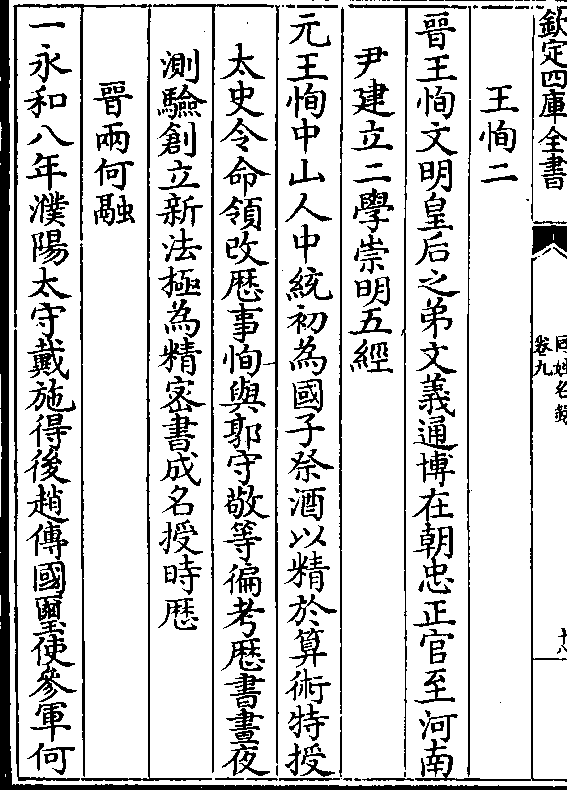 欽定四庫全書
同姓名録
卷九
十八
王恂二
晉王恂文明皇后之弟文義通博在朝忠正官至河南
尹建立二學崇明五經
元王恂中山人中統初為國子祭酒以精於算術特授
太史令命領改厯事恂與郭守敬等徧考厯書晝夜
測驗創立新法極為精密書成名授時厯
晉兩何融
一永和八年濮陽太守戴施得後趙傳國璽使參軍何